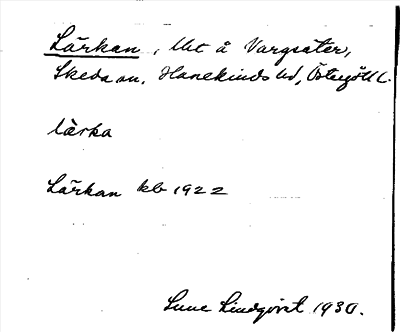 Lärkan, lht å Vargsäter,
Skeda sn, Hanekinds hd, Östergötl l.
lärka
Lärkan kb 1922
Sune Lindqvist 1930.